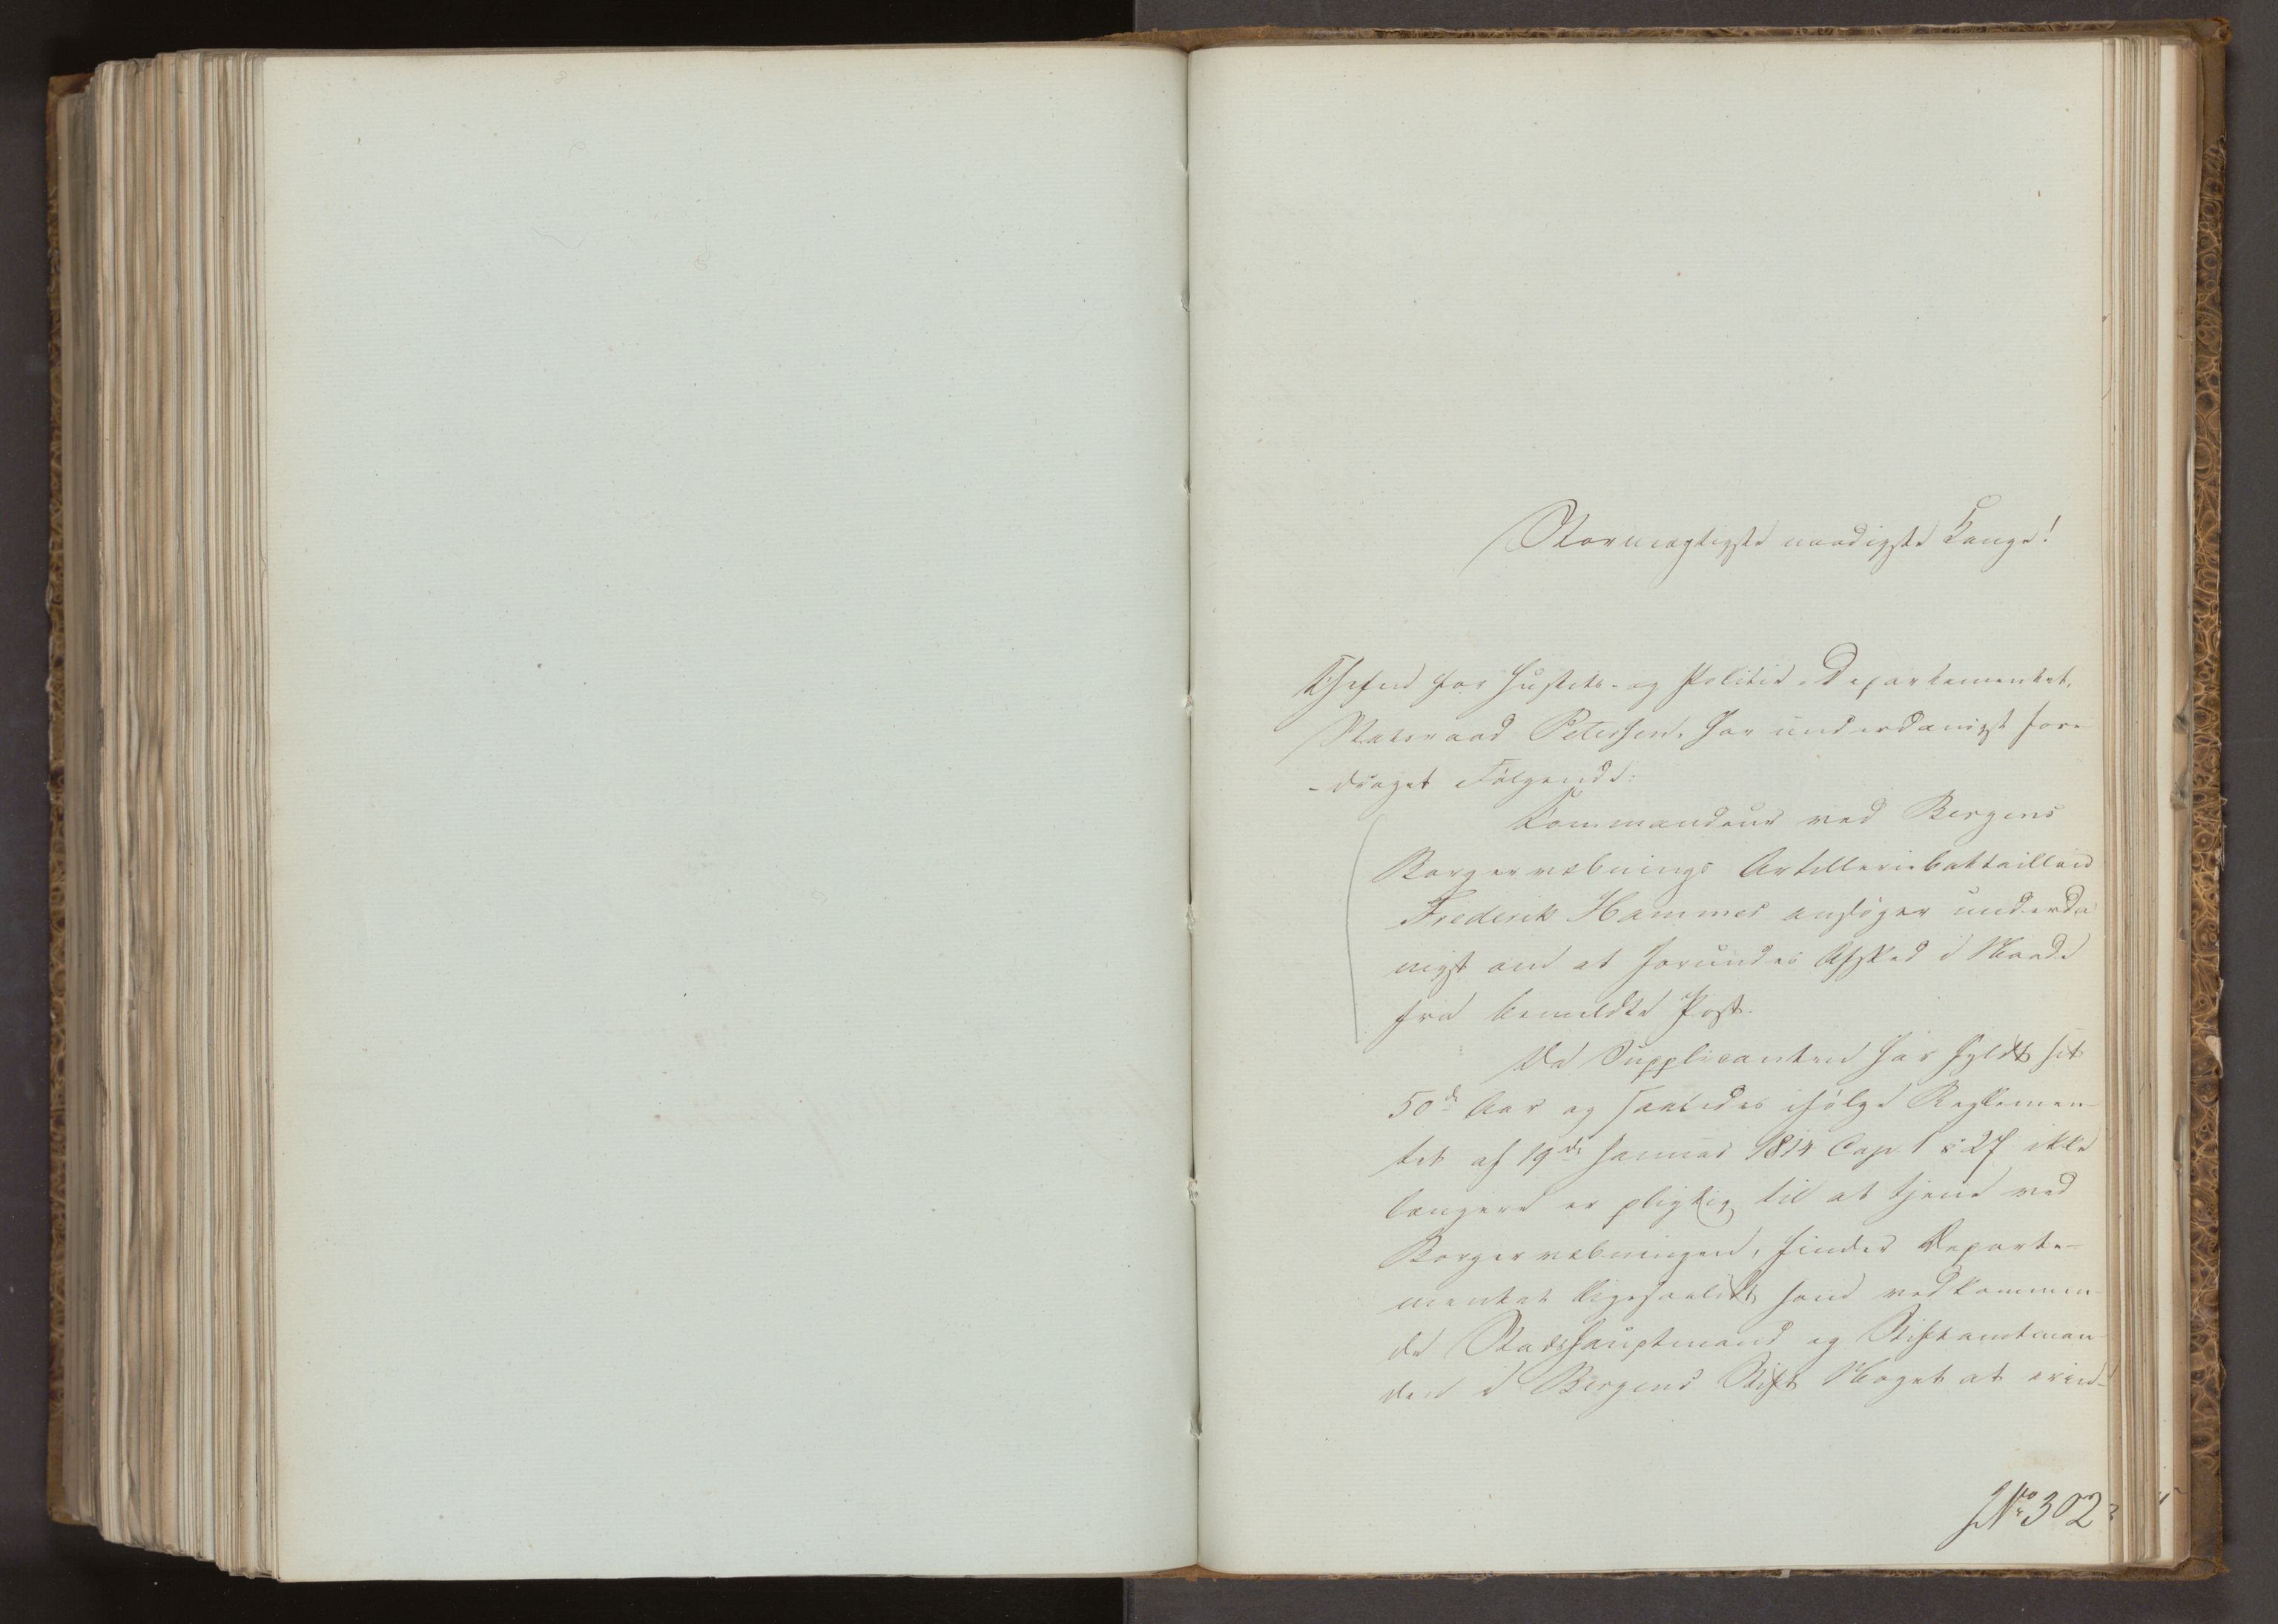 Stormægtigste naadigste Konge!
Chefen for Justits- og Politie-Departementet,
Statsraad Petersen, har underdanigst fore-
-draget Følgende:
Kommandeur ved Bergens
Borgervæbnings Artilleriebattaillon
Frederik Hammer ansøger underda
nigst om at forundes Afsked i Naade
fra bemeldte Post.
Da Supplicanten har fyldt sit
50de Aar og saaledes ifølge Reglemen-
tet af 19de Januar 1814 Cap. 1 § 27 ikke
længere er pligtig til at tjene ved
Borgervæbningen, finder Departe-
mentet ligesaalidt som vedkommen-
de Stadshauptmand og Stiftamtman-
den i Bergens Stift Noget at erind-
No 302